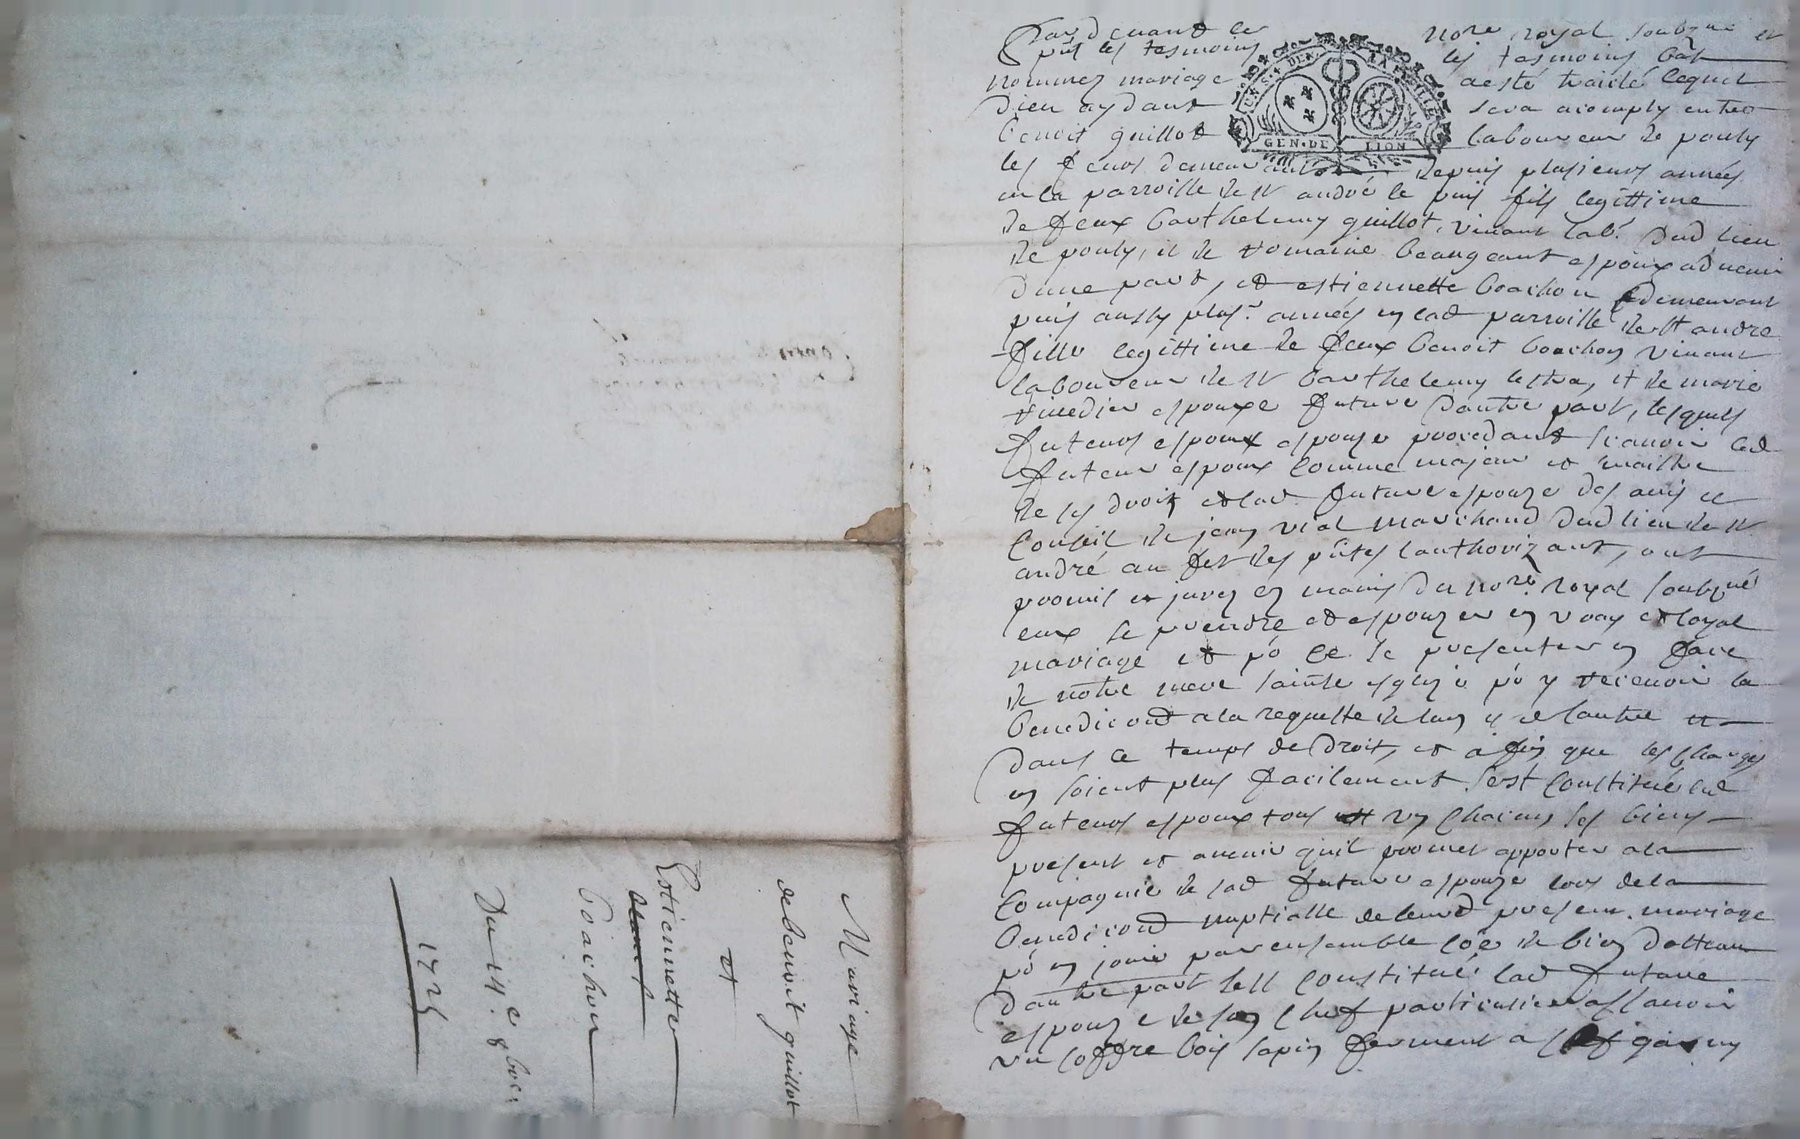 Mariage
de benoit guillot
et
Estiennette
Poachon
Du 14e 8bre
1725
Pardevant le no.re royal soubzné et
pnt les tesmoins les tesmoins bas
nommez mariage a esté traicté lequel
Dieu aydant sera acomply entre
benoit guillot laboureur de pouly
UN S. 4 DEN. LA FEUILLE
GEN. DE LION
les feurs demeurant depuis plusieurs années
en la parroisse de st andré le puis fils legittime
de feux barthelemy guillot, vivant lab.r dud lieu
de pouly, et de romaine beaugeant espoux advenir
d'une part, et estiennette boachon demeurant
puis aussy plus.rs années en lad parroisse de st andré
fille legittime de feux benoit boachon vivant
laboureur de st barthelemy lestra, et de marie
espouze future d'autre part, lesquels
futeurs espoux espouze procedant scavoir led
futeur espoux comme majeur et maistre
de ses droits et lad future espouze des avis et
conseil de jean vial marchand dud lieu de st
andré au fet des pntes l'authorizant, ont
promis et jurez es mains du no.re royal soubzné
eux se prendre et espouzer en vray et loyal
mariage et po ce se presenter en face
de notre mere sainte esglize po y recevoir la
benediction a la requette de lun et de lautre
dans le temps de droit, et afin que les charges
en soient plus facilement s'est constitué led
futeurs espoux tous et un chacuns ses biens
present et avenir quil promet apporter a la
compagnie de lad future espouze lors de la
benediction nuptialle de leurd present mariage
po en jouir par ensemble coe de bien dotteaux
d'autre part s'est constituée lad future
espouze de son chef particulier assavoir
un coffre bois sapin ferment a clef garny